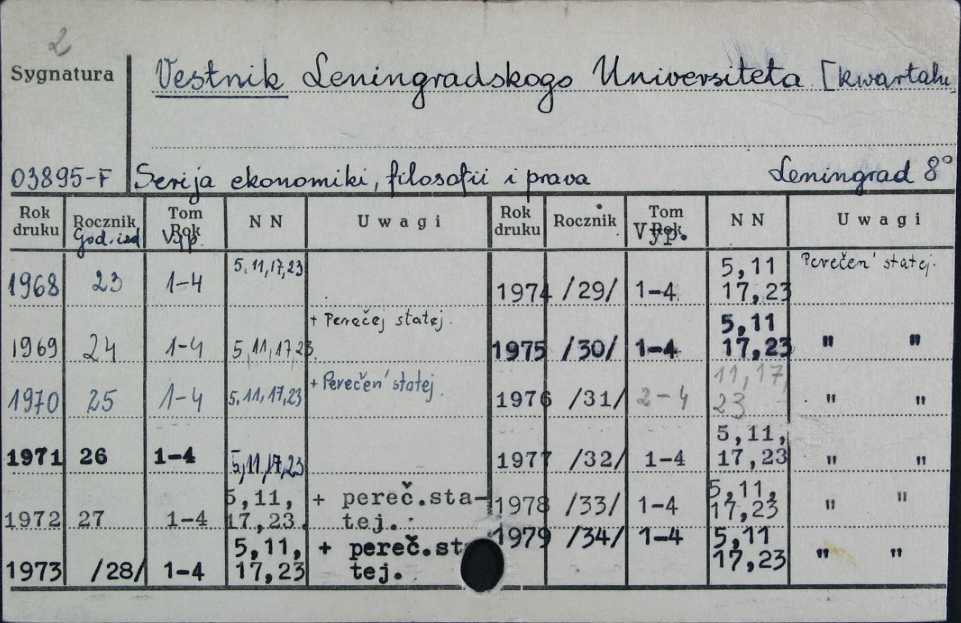 2
Sygnatura
Vestnik Leningradskogo Universiteta [kwartaln
03895-F Serija ekonomiki, filosofii i prava Leningrad 8°
Rok druku Rocznik God.izd Tom Rok Vyp. N N Uwagi Rok druku Rocznik Tom Rok Vyp. N N Uwagi
1968 23 1-4 5, 11, 17, 23
1969 24 1-4 5, 11, 17, 23 + Perečej statej.
1970 25 1-4 5, 11, 17, 23 + Perečen' statej.
1971 26 1-4 5, 11, 17, 23
1972 27 1-4 5, 11, 17, 23. + pereč.sta-tej.
1973 /28/ 1-4 5, 11, 17, 23 + pereč.st tej.
1974 /29/ 1-4 5, 11 17, 23 Perečen' statej.
1975 /30/ 1-4 5, 11 17, 23 " "
1976 /31/ 2-4 11, 17, 23 " "
1977 /32/ 1-4 5, 11, 17, 23 " "
1978 /33/ 1-4 5, 11, 17, 23 " "
1979 /34/ 1-4 5, 11 17, 23 " "